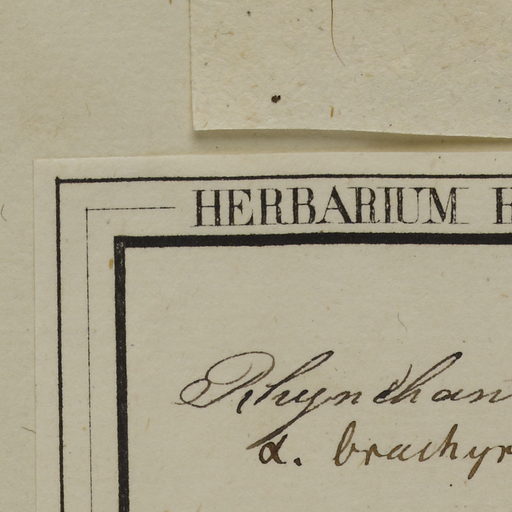 HERBARIUM
Rhynchan
α. brachyr